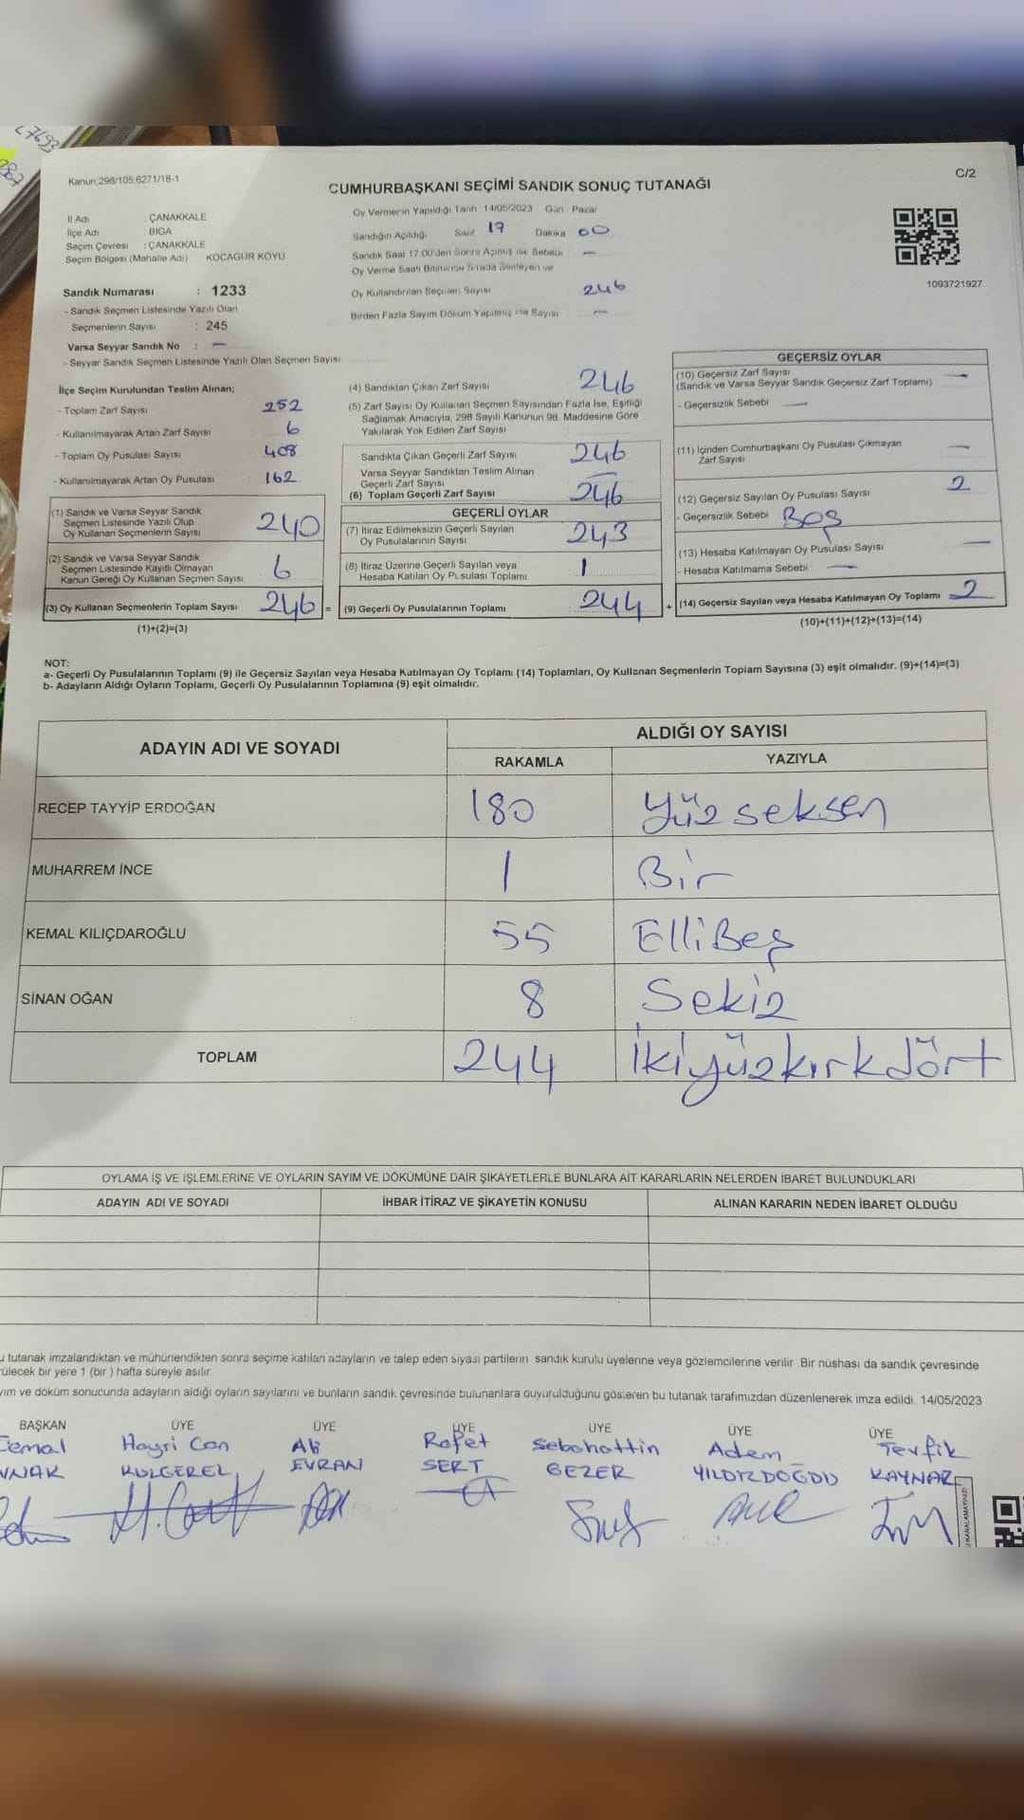 Kanun:298/105,6271/18-1
C/2
CUMHURBAŞKANI SEÇİMİ SANDIK SONUÇ TUTANAĞI
İl Adı : ÇANAKKALE
İlçe Adı : BİGA
Seçim Çevresi : ÇANAKKALE
Seçim Bölgesi (Mahalle Adı) KOCAGÜR KÖYÜ
Oy Vermenin Yapıldığı Tarih 14/05/2023 Gün : Pazar
Sandığın Açıldığı Saat 17 Dakika 00
Sandık Saat 17.00'den Sonra Açılmış ise Sebebi —
Oy Verme Saati Bitiminde Sırada Bekleyen ve
Oy Kullandırılan Seçmen Sayısı 246
Birden Fazla Sayım Döküm Yapılmış ise Sayısı —
1093721927
Sandık Numarası : 1233
- Sandık Seçmen Listesinde Yazılı Olan
Seçmenlerin Sayısı : 245
Varsa Seyyar Sandık No : —
- Seyyar Sandık Seçmen Listesinde Yazılı Olan Seçmen Sayısı
İlçe Seçim Kurulundan Teslim Alınan;
- Toplam Zarf Sayısı 252
- Kullanılmayarak Artan Zarf Sayısı 6
- Toplam Oy Pusulası Sayısı 408
- Kullanılmayarak Artan Oy Pusulası 162
(1) Sandık ve Varsa Seyyar Sandık
Seçmen Listesinde Yazılı Olup
Oy Kullanan Seçmenlerin Sayısı 240
(2) Sandık ve Varsa Seyyar Sandık
Seçmen Listesinde Kayıtlı Olmayan
Kanun Gereği Oy Kullanan Seçmen Sayısı 6
(3) Oy Kullanan Seçmenlerin Toplam Sayısı 246 =
(1)+(2)=(3)
(4) Sandıktan Çıkan Zarf Sayısı 246
(5) Zarf Sayısı Oy Kullanan Seçmen Sayısından Fazla İse, Eşitliği
Sağlamak Amacıyla, 298 Sayılı Kanunun 98. Maddesine Göre
Yakılarak Yok Edilen Zarf Sayısı
Sandıkta Çıkan Geçerli Zarf Sayısı 246
Varsa Seyyar Sandıktan Teslim Alınan
Geçerli Zarf Sayısı —
(6) Toplam Geçerli Zarf Sayısı 246
GEÇERLİ OYLAR
(7) İtiraz Edilmeksizin Geçerli Sayılan
Oy Pusulalarının Sayısı 243
(8) İtiraz Üzerine Geçerli Sayılan veya
Hesaba Katılan Oy Pusulası Toplamı 1
(9) Geçerli Oy Pusulalarının Toplamı 244 +
GEÇERSİZ OYLAR
(10) Geçersiz Zarf Sayısı —
(Sandık ve Varsa Seyyar Sandık Geçersiz Zarf Toplamı)
- Geçersizlik Sebebi —
(11) İçinden Cumhurbaşkanı Oy Pusulası Çıkmayan —
Zarf Sayısı
(12) Geçersiz Sayılan Oy Pusulası Sayısı 2
- Geçersizlik Sebebi Boş
(13) Hesaba Katılmayan Oy Pusulası Sayısı —
- Hesaba Katılmama Sebebi —
(14) Geçersiz Sayılan veya Hesaba Katılmayan Oy Toplamı 2
(10)+(11)+(12)+(13)=(14)
NOT:
a- Geçerli Oy Pusulalarının Toplamı (9) ile Geçersiz Sayılan veya Hesaba Katılmayan Oy Toplamı (14) Toplamları, Oy Kullanan Seçmenlerin Toplam Sayısına (3) eşit olmalıdır. (9)+(14)=(3)
b- Adayların Aldığı Oyların Toplamı, Geçerli Oy Pusulalarının Toplamına (9) eşit olmalıdır.
ADAYIN ADI VE SOYADI
ALDIĞI OY SAYISI
RAKAMLA YAZIYLA
RECEP TAYYİP ERDOĞAN 180 Yüzseksen
MUHARREM İNCE 1 Bir
KEMAL KILIÇDAROĞLU 55 ElliBeş
SİNAN OĞAN 8 Sekiz
TOPLAM 244 İkiyüzkırkdört
OYLAMA İŞ VE İŞLEMLERİNE VE OYLARIN SAYIM VE DÖKÜMÜNE DAİR ŞİKAYETLERLE BUNLARA AİT KARARLARIN NELERDEN İBARET BULUNDUKLARI
ADAYIN ADI VE SOYADI İHBAR İTİRAZ VE ŞİKAYETİN KONUSU ALINAN KARARIN NEDEN İBARET OLDUĞU
u tutanak imzalandıktan ve mühürlendikten sonra seçime katılan adayların ve talep eden siyasi partilerin sandık kurulu üyelerine veya gözlemcilerine verilir. Bir nüshası da sandık çevresinde
rülecek bir yere 1 (bir) hafta süreyle asılır.
yım ve döküm sonucunda adayların aldığı oyların sayılarını ve bunların sandık çevresinde bulunanlara duyurulduğunu gösteren bu tutanak tarafımızdan düzenlenerek imza edildi. 14/05/2023
BAŞKAN ÜYE ÜYE ÜYE ÜYE ÜYE ÜYE
Cemal Hayri Can Ali Rafet Sebahattin Adem Tevfik
YNAK KULGEREL EVRAN SERT GEZER YILDIZDOĞDU KAYNAR